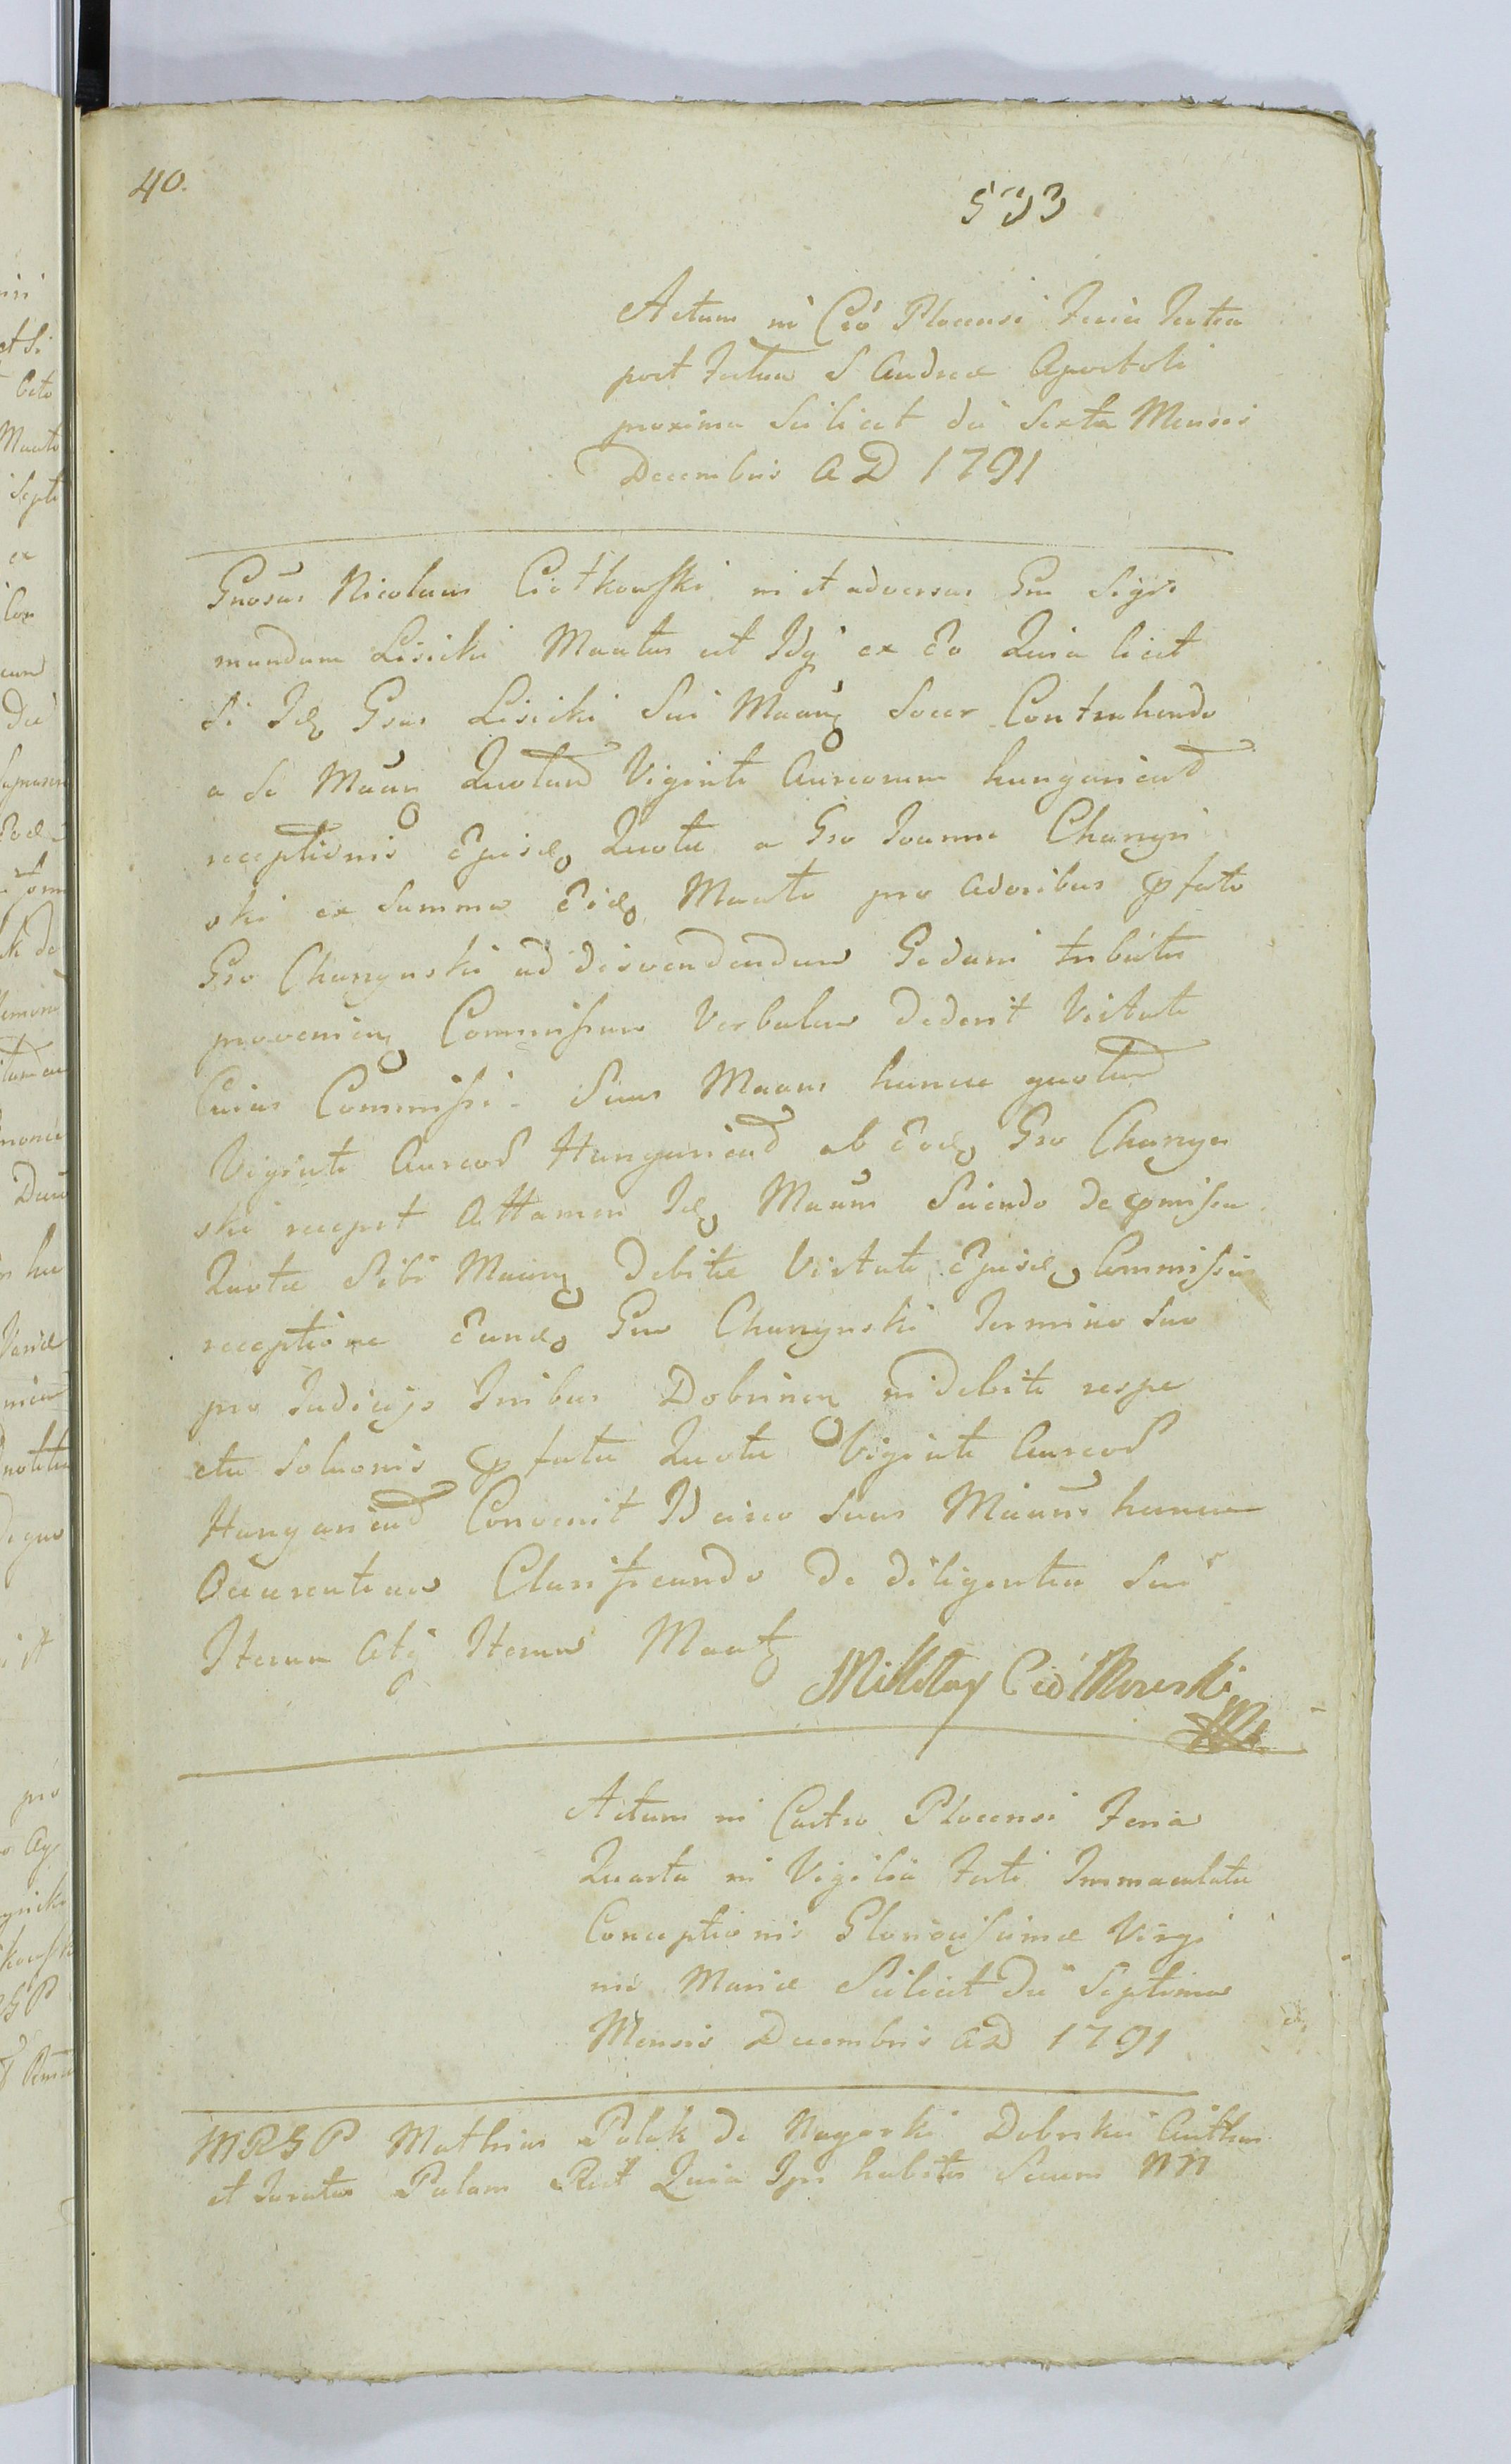 40.
533
Actum in Cio Plocensi Feria Tertia
post Festum S Andreæ Apostoli
proxima Scilicet die Sexta Mensis
Decembris A D 1791
Gnosus Nicolaus Ciołkowski in et adversus Gnm Sigis
mundum Lisicki Mantus est Idq ex Eo Quia licet
Si Idq Gsus Lisicki Sui Maans Socer Contrahendo
a se Maan Quotam Viginti Aureorum hungaricad
receptionis Ejusdq Quotæ a Gso Joanne Chamyn
ski ex Summa Eidq Mante pro Adoribus pfato
Gso Chamynski ad disvendendum Gedani tributis
provenien Commissum Verbalem dederit Virtute
Cuius Commissi Suus Maans hancce quotam
Viginti Aureod Hungaricad ab Eodq Gso Chamyn
ski recepit Attamen Idq Maans Sciendo de pmissa
Quotæ Sibi Maanq Debitæ Virtute Ejusdq Commissi
receptione Eundq Gsm Chamynski Termino suo
pro Judicijs Tribus Dobrinen indebite respe
ctu Soluonis pfatæ Quotæ Viginti Aureod
Hungaricad Convenit Idcirco Suus Maans hancce
Occurentiam Clarificando de diligentia Sua
Iterum Atq Iterum Mantq
Mikołay Ciołkowski
Actum in Castro Plocensi Feria
Quarta in Vigilia Festi Immaculatæ
Conceptionis Gloriosissimæ Virgi
nis Mariæ Scilicet Die Septima
Mensis Decembris AD 1791
MRGP Mathias Polak de Nagorki Dobrskie Authen
et Juratus Palam Rect Quia Ipse habitis Secum NN